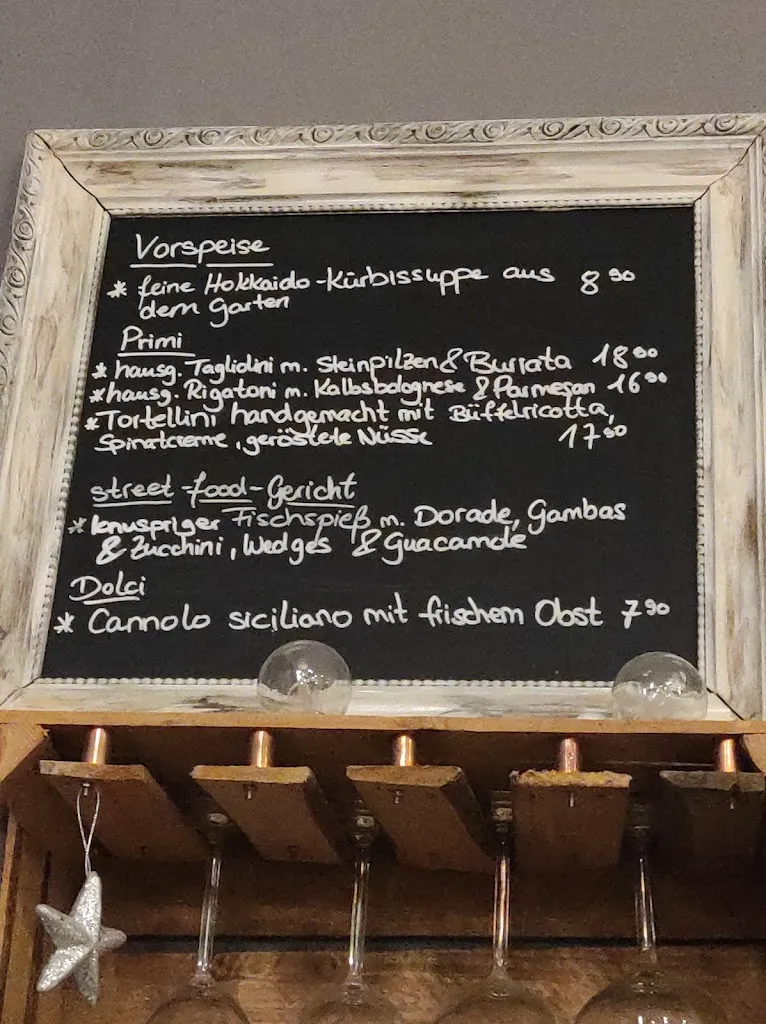 Vorspeise
* feine Hokkaido-Kürbissuppe aus 8 90
dem Garten
Primi
* hausg. Taglidini m. Steinpilzen & Burrata 18 00
* hausg. Rigatoni m. Kalbsbolognese & Parmesan 16 90
* Tortellini handgemacht mit Büffelricotta,
Spinatcreme, geröstete Nüsse 17 90
street-food-Gericht
* knuspriger Fischspieß m. Dorade, Gambas
& Zucchini, Wedges & Guacamole
Dolci
* Cannolo siciliano mit frischem Obst 7 90